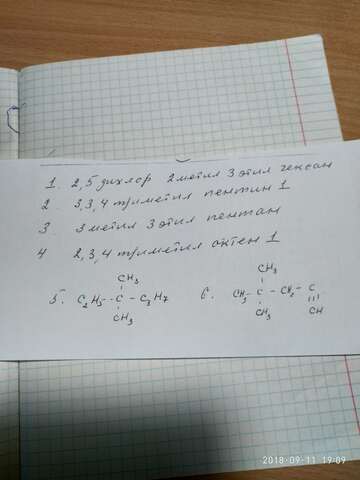 1. 2,5 дихлор 2 метил 3 этил гексан
2 3,3,4 триметил пентин 1
3 3 метил 3 этил пентан
4 2,3,4 триметил октен 1
CH₃
5. C₂H₅ - C - C₃H₇
CH₃
CH₃
6. CH₃ - C - CH₂ - C
CH₃ CH
2018-09-11 19:09